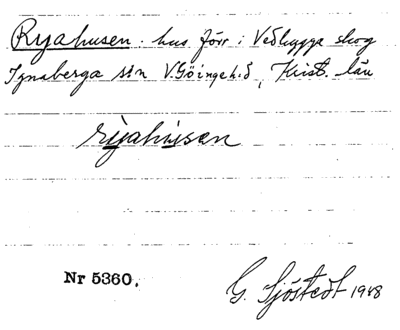 Ryahusen. hus förr i Vedhygge skog
Ignaberga s:n V. Göinge h:d, Krist. län
ryahusen
Nr 5360.
G. Sjöstedt 1948